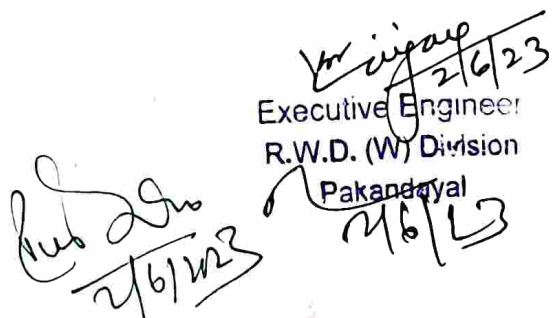 2/6/23
Executive Engineer
R.W.D. (W) Division
Pakandayal
2/6/23
2/6/2023